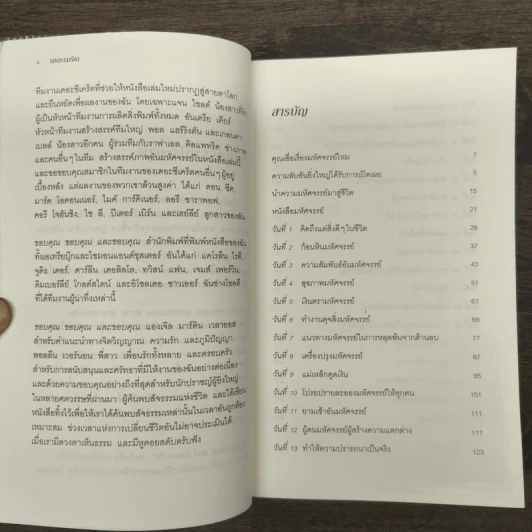 ๖ เดอะเมจิก
ทีมงานเดอะซีเคร็ตที่ช่วยให้หนังสือเล่มใหม่ปรากฏสู่สายตาโลก
และยืนหยัดเพื่อผลงานของฉัน โดยเฉพาะแจน ไชลด์ น้องสาวที่รัก
ผู้เป็นหัวหน้าทีมการผลิตสิ่งพิมพ์ทั้งหมด อันเดรีย เคียร์
หัวหน้าทีมงานสร้างสรรค์ทีมใหญ่ พอล แฮร์ริงตัน และเกลนดา
เบลล์ น้องสาวอีกคน ผู้ร่วมทีมกับราฟาเอล คิลแพทริค ช่างภาพ
และคนอื่นๆ ในทีม สร้างสรรค์ภาพอันมหัศจรรย์ในหนังสือเล่มนี้
และขอขอบคุณสมาชิกในทีมงานของเดอะซีเคร็ตคนอื่นๆ ผู้อยู่
เบื้องหลัง แต่ผลงานของพวกเขาล้วนสูงค่า ได้แก่ ดอน ซิค,
มาร์ค โอคอนเนอร์, ไมค์ การ์ดิเนอร์, ลอรี ชาราพอฟ,
คอรี โจฮันซิง, ไช ลี, ปีเตอร์ เบิร์น และเฮย์ลีย์ ลูกสาวของฉัน
ขอบคุณ ขอบคุณ และขอบคุณ สำนักพิมพ์ที่พิมพ์หนังสือของฉัน
ทั้งเอเทรียบุ๊กและไซมอนแอนด์ชุสเตอร์ อันได้แก่ แคโรลีน ไรดี,
จูดิธ เคอร์, ดาร์ลีน เดอลิลโล, ทวิสน์ แฟน, เจมส์ เพอร์วิน,
คิมเบอร์ลีย์ โกลด์สไตน์ และอิโซลเดอ ซาวเออร์ ฉันช่างโชคดี
ที่ได้ทีมงานผู้น่าทึ่งเหล่านี้
ขอบคุณ ขอบคุณ และขอบคุณ แองเจิล มาร์ติน เวลายอส
สำหรับคำแนะนำทางจิตวิญญาณ ความรัก และภูมิปัญญา
พอลลีน เวอร์นอน พี่สาว เพื่อนรักทั้งหลาย และครอบครัว
สำหรับการสนับสนุนและศรัทธาที่มีให้งานของฉันอย่างต่อเนื่อง
และด้วยความขอบคุณอย่างถึงที่สุดสำหรับนักปราชญ์ผู้ยิ่งใหญ่
ในหลายศตวรรษที่ผ่านมา ผู้ค้นพบสัจธรรมแห่งชีวิต และได้เขียน
หนังสือทิ้งไว้เพื่อให้เราได้ค้นพบสัจธรรมเหล่านั้นในเวลาอันถูกต้อง
เหมาะสม ช่วงเวลาแห่งการเปลี่ยนชีวิตอันไม่อาจประเมินได้
เมื่อเรามีดวงตาเห็นธรรม และมีหูคอยสดับตรับฟัง
สารบัญ
คุณเชื่อเรื่องมหัศจรรย์ไหม 1
ความลับอันยิ่งใหญ่ได้รับการเปิดเผย 5
นำความมหัศจรรย์มาสู่ชีวิต 15
หนังสือมหัศจรรย์ 21
วันที่ 1 คิดถึงแต่สิ่งดีๆ ในชีวิต 29
วันที่ 2 ก้อนหินมหัศจรรย์ 37
วันที่ 3 ความสัมพันธ์อันมหัศจรรย์ 43
วันที่ 4 สุขภาพมหัศจรรย์ 51
วันที่ 5 เงินตรามหัศจรรย์ 61
วันที่ 6 ทำงานดุจสิ่งมหัศจรรย์ 69
วันที่ 7 แนวทางมหัศจรรย์ในการหลุดพ้นจากด้านลบ 77
วันที่ 8 เครื่องปรุงมหัศจรรย์ 87
วันที่ 9 แม่เหล็กดูดเงิน 95
วันที่ 10 โปรยปรายละอองมหัศจรรย์ให้ทุกคน 101
วันที่ 11 ยามเช้าอันมหัศจรรย์ 111
วันที่ 12 ผู้คนมหัศจรรย์ผู้สร้างความแตกต่าง 117
วันที่ 13 ทำให้ความปรารถนาเป็นจริง 123